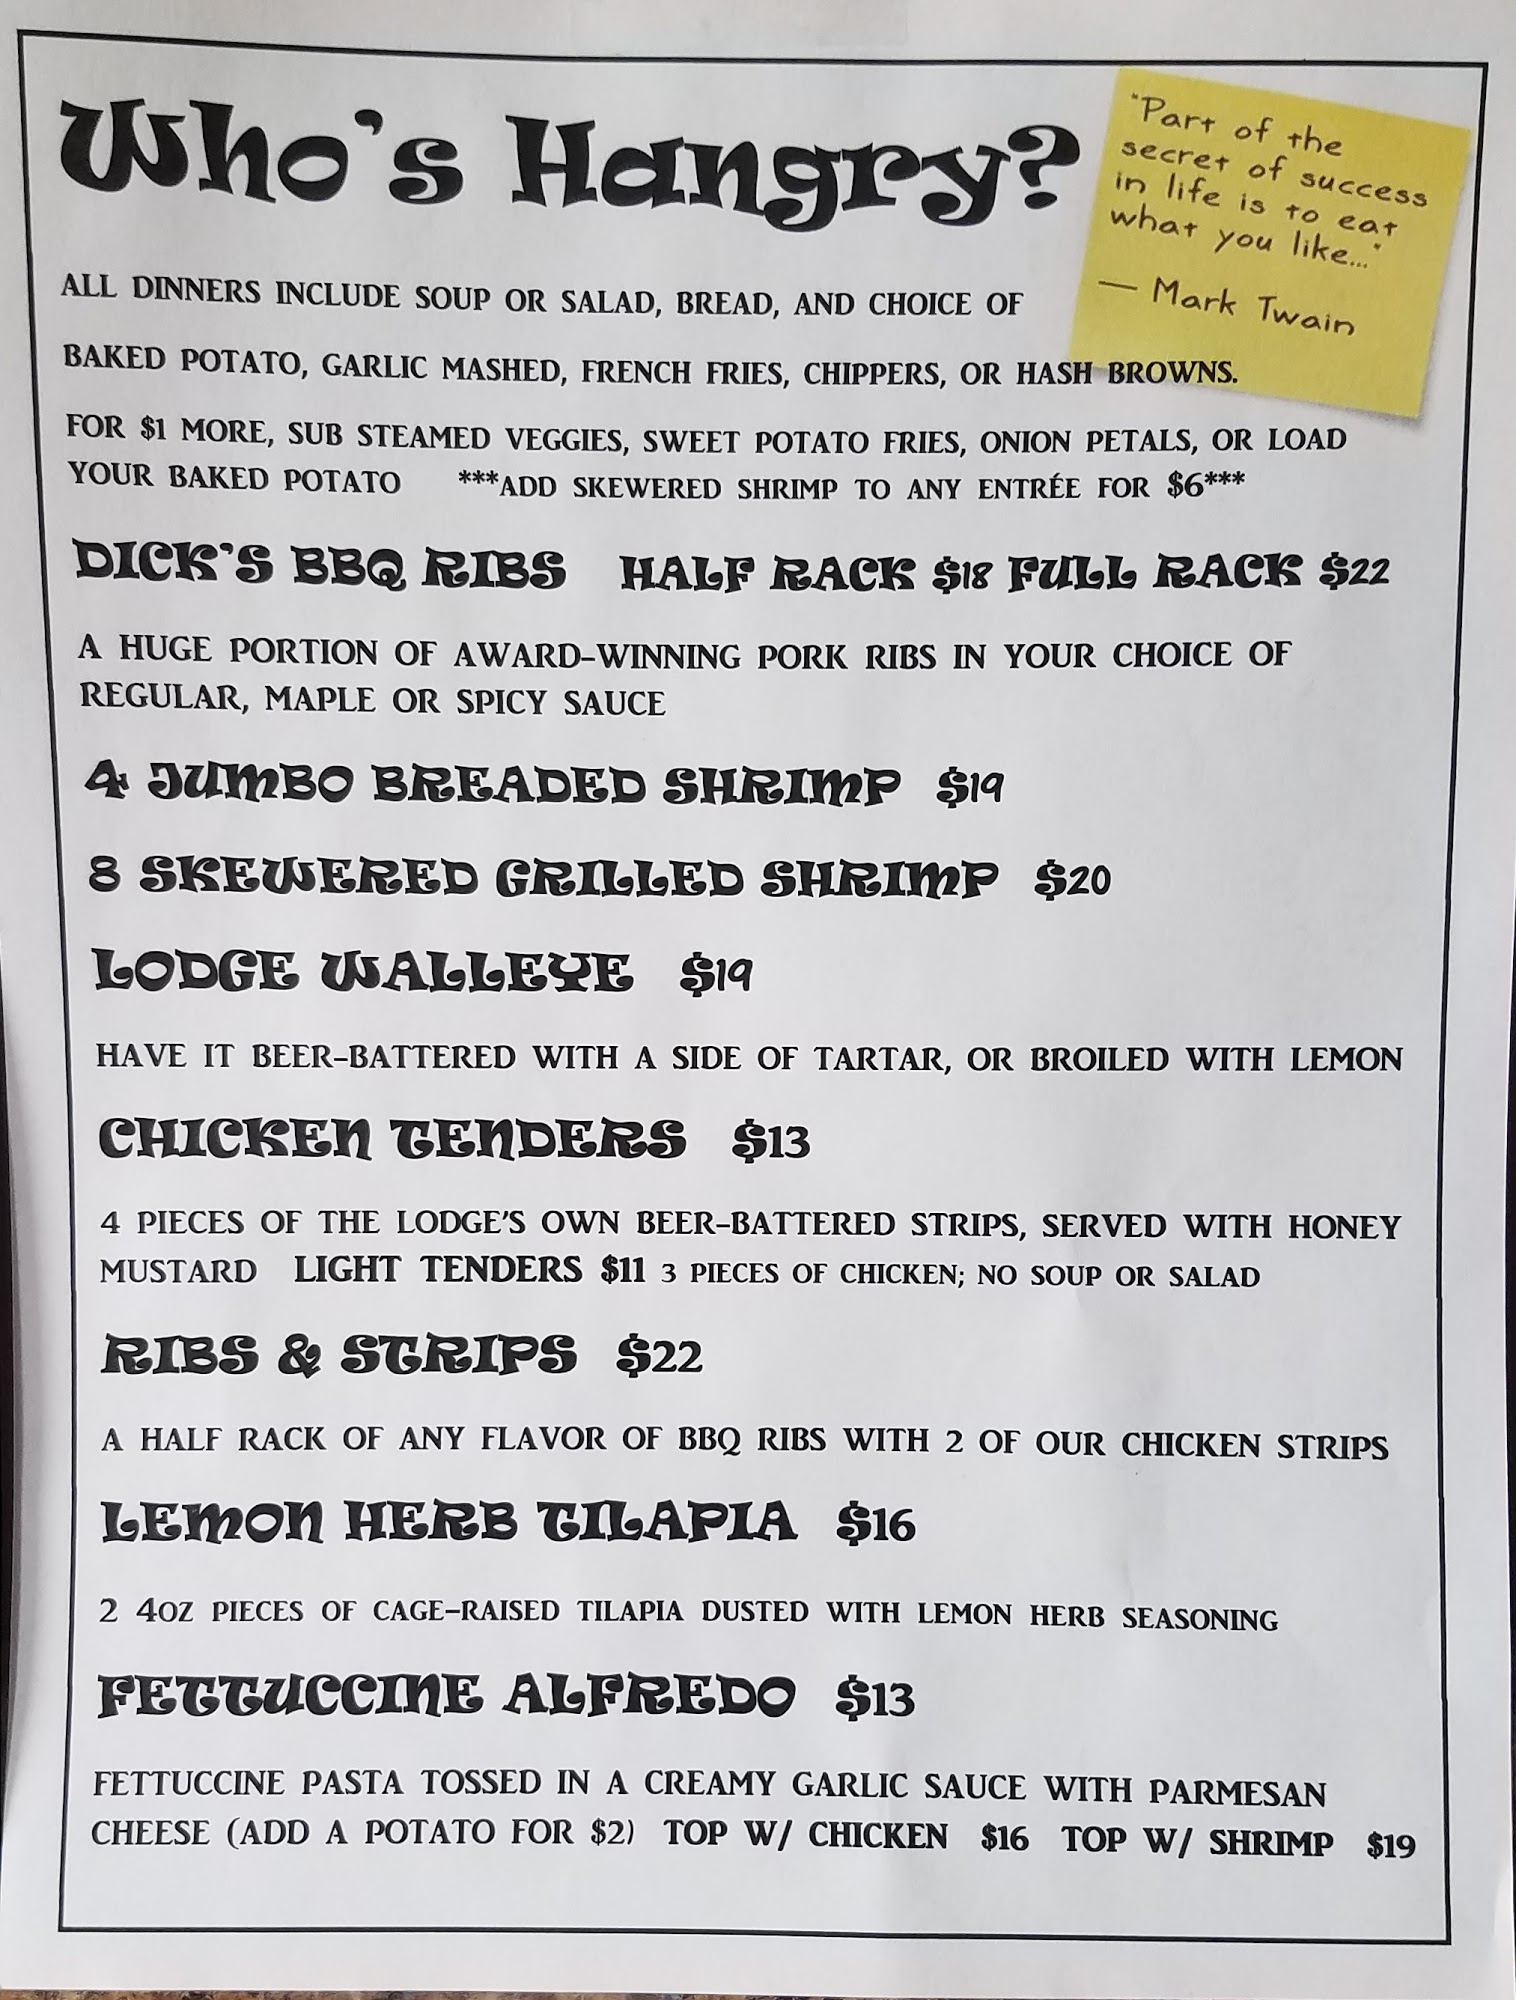 Who's Hangry?
"Part of the
secret of success
in life is to eat
what you like..."
— Mark Twain
ALL DINNERS INCLUDE SOUP OR SALAD, BREAD, AND CHOICE OF
BAKED POTATO, GARLIC MASHED, FRENCH FRIES, CHIPPERS, OR HASH BROWNS.
FOR $1 MORE, SUB STEAMED VEGGIES, SWEET POTATO FRIES, ONION PETALS, OR LOAD
YOUR BAKED POTATO ***ADD SKEWERED SHRIMP TO ANY ENTRÉE FOR $6***
DICK'S BBQ RIBS HALF RACK $18 FULL RACK $22
A HUGE PORTION OF AWARD-WINNING PORK RIBS IN YOUR CHOICE OF
REGULAR, MAPLE OR SPICY SAUCE
4 JUMBO BREADED SHRIMP $19
8 SKEWERED GRILLED SHRIMP $20
LODGE WALLEYE $19
HAVE IT BEER-BATTERED WITH A SIDE OF TARTAR, OR BROILED WITH LEMON
CHICKEN TENDERS $13
4 PIECES OF THE LODGE'S OWN BEER-BATTERED STRIPS, SERVED WITH HONEY
MUSTARD LIGHT TENDERS $11 3 PIECES OF CHICKEN; NO SOUP OR SALAD
RIBS & STRIPS $22
A HALF RACK OF ANY FLAVOR OF BBQ RIBS WITH 2 OF OUR CHICKEN STRIPS
LEMON HERB TILAPIA $16
2 4OZ PIECES OF CAGE-RAISED TILAPIA DUSTED WITH LEMON HERB SEASONING
FETTUCCINE ALFREDO $13
FETTUCCINE PASTA TOSSED IN A CREAMY GARLIC SAUCE WITH PARMESAN
CHEESE (ADD A POTATO FOR $2) TOP W/ CHICKEN $16 TOP W/ SHRIMP $19